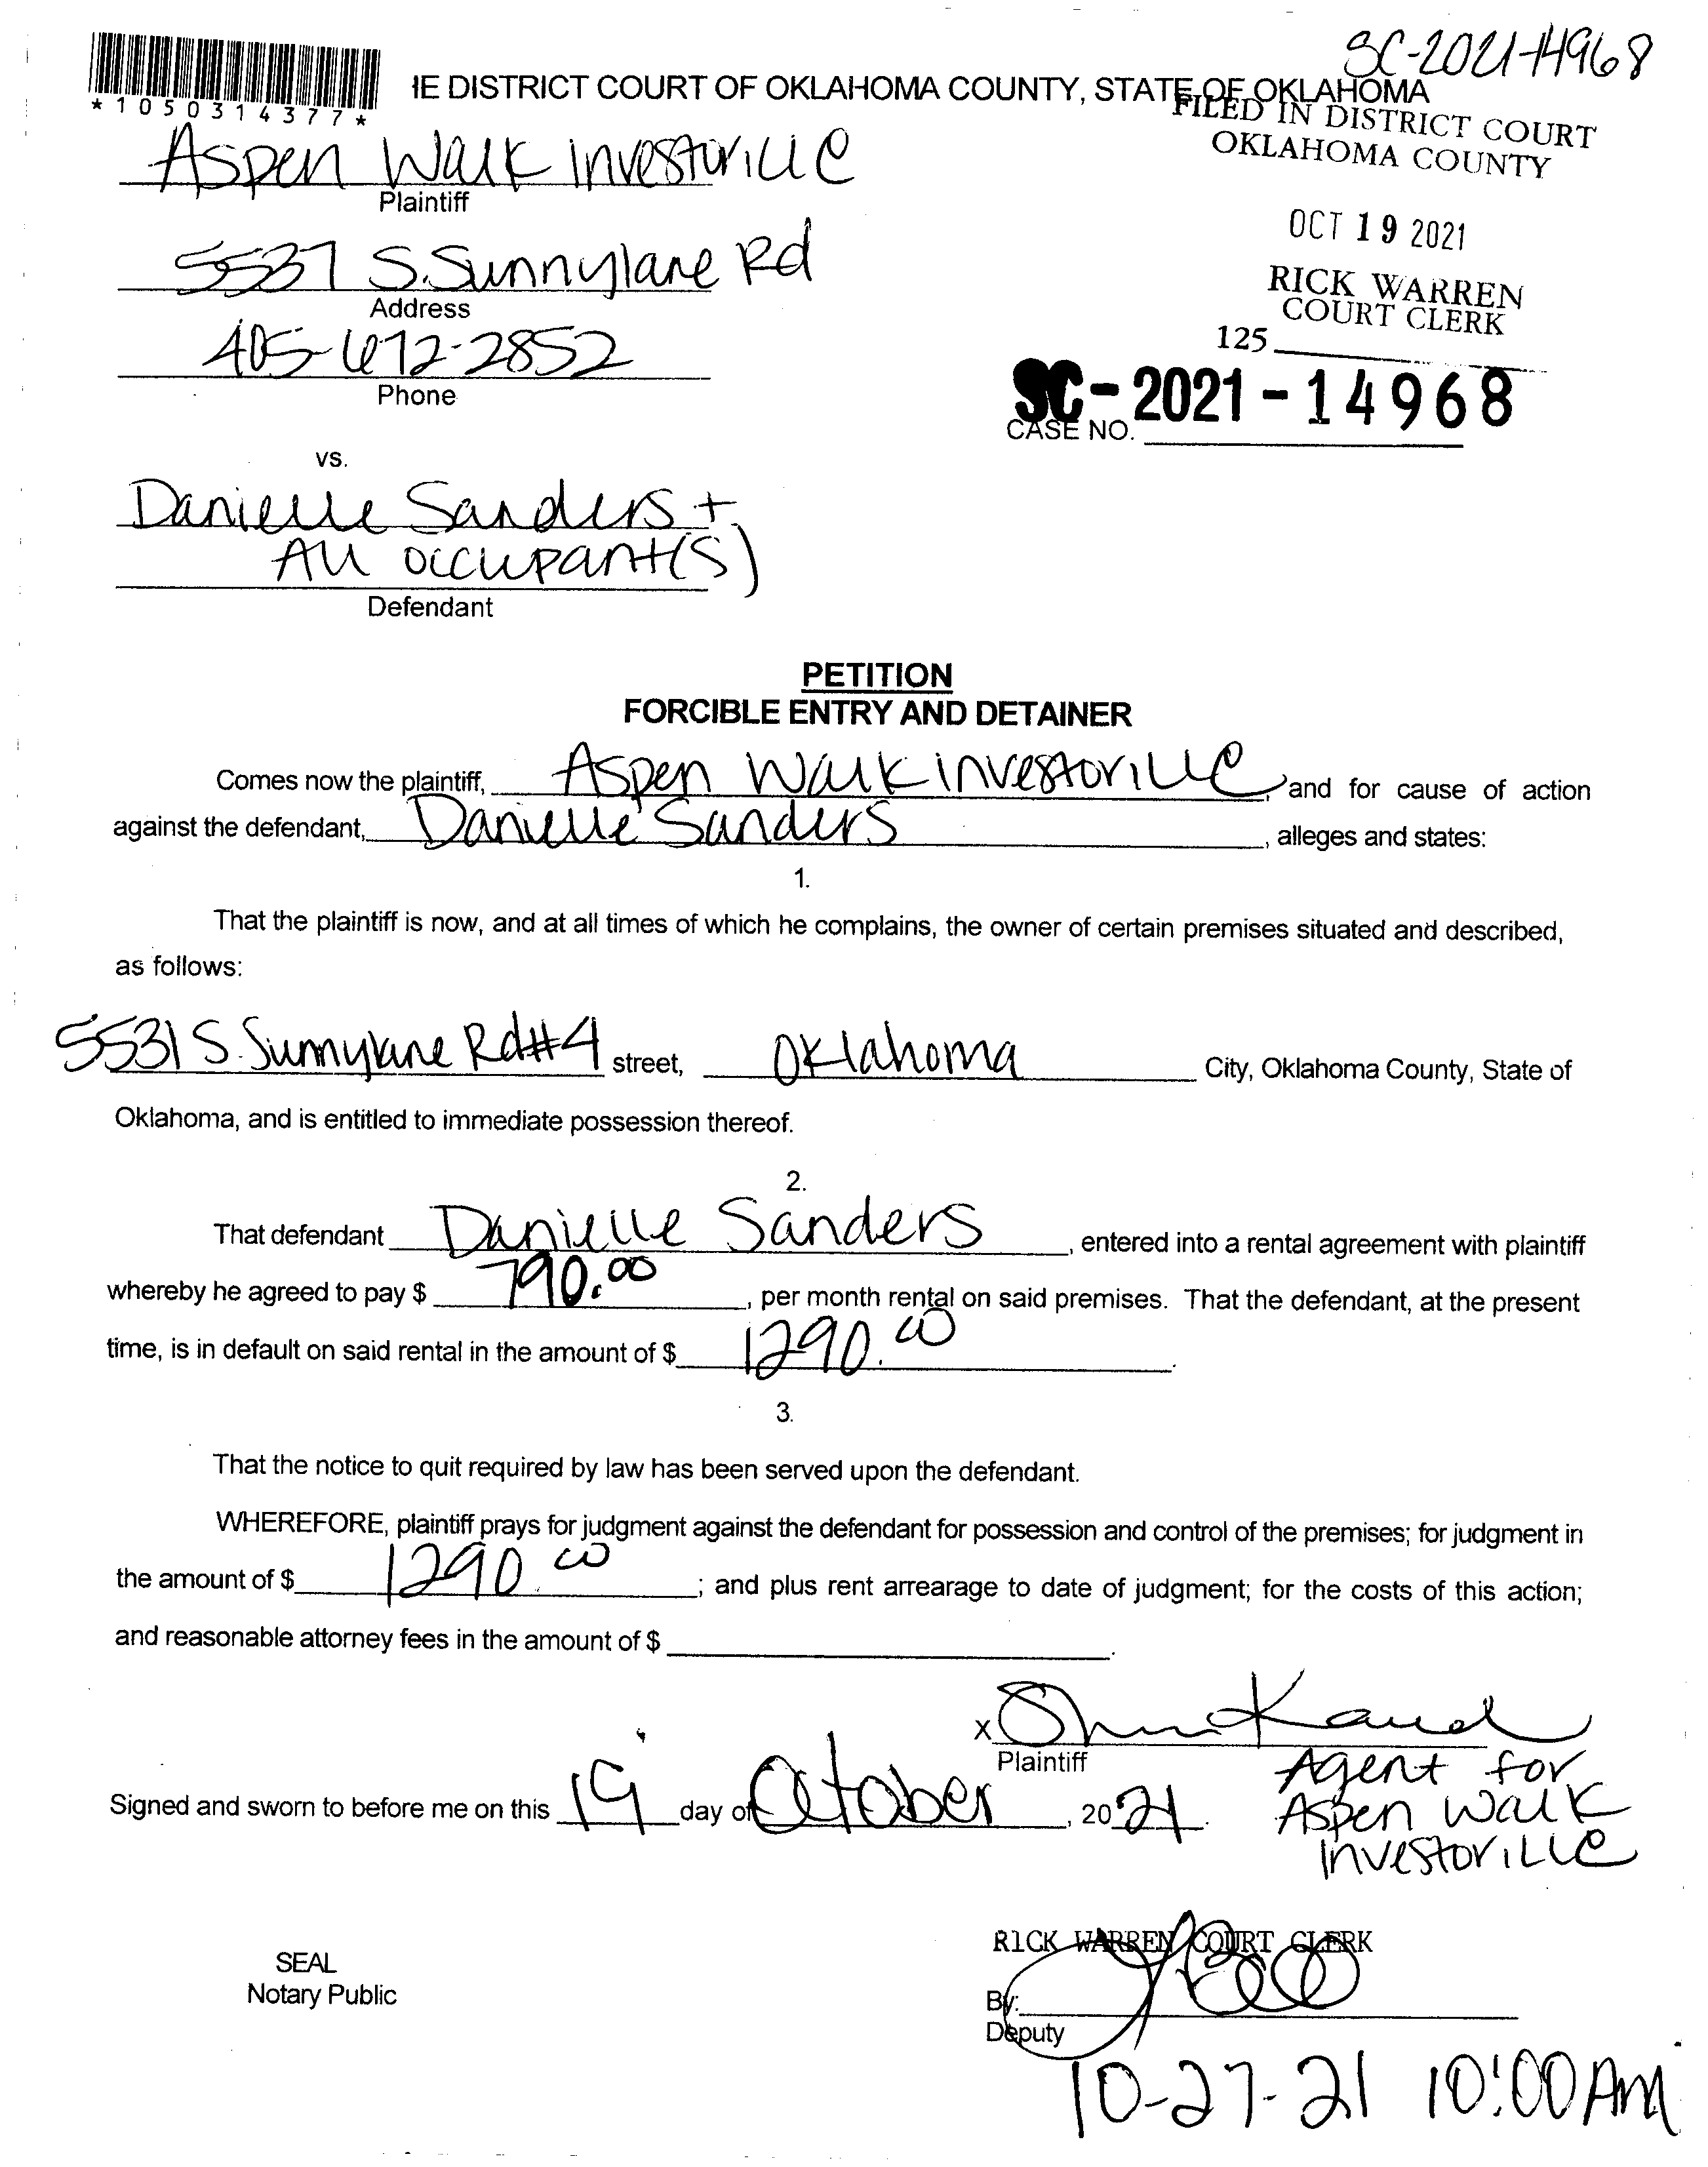 SC-2021-14968
*1050314377*
IE DISTRICT COURT OF OKLAHOMA COUNTY, STATE OF OKLAHOMA
FILED IN DISTRICT COURT
OKLAHOMA COUNTY
OCT 19 2021
RICK WARREN
COURT CLERK
125
SC-2021-14968
CASE NO.
Aspen Walk Investor LLC
Plaintiff
5537 S. Sunnylane Rd
Address
405-672-2852
Phone
vs.
Danielle Sanders +
All occupant(s)
Defendant
PETITION
FORCIBLE ENTRY AND DETAINER
Comes now the plaintiff, Aspen Walk investor LLC, and for cause of action
against the defendant, Danielle Sanders, alleges and states:
1.
That the plaintiff is now, and at all times of which he complains, the owner of certain premises situated and described,
as follows:
5531 S. Sunnylane Rd #4 street, Oklahoma City, Oklahoma County, State of
Oklahoma, and is entitled to immediate possession thereof.
2.
That defendant Danielle Sanders, entered into a rental agreement with plaintiff
whereby he agreed to pay $ 790.00, per month rental on said premises. That the defendant, at the present
time, is in default on said rental in the amount of $ 1290.00.
3.
That the notice to quit required by law has been served upon the defendant.
WHEREFORE, plaintiff prays for judgment against the defendant for possession and control of the premises; for judgment in
the amount of $ 1290.00; and plus rent arrearage to date of judgment; for the costs of this action;
and reasonable attorney fees in the amount of $ .
X
Plaintiff
Agent for
Aspen Walk
Investor LLC
Signed and sworn to before me on this 19 day of October, 2021.
SEAL
Notary Public
RICK WARREN COURT CLERK
By:
Deputy
10-27-21 10:00 AM